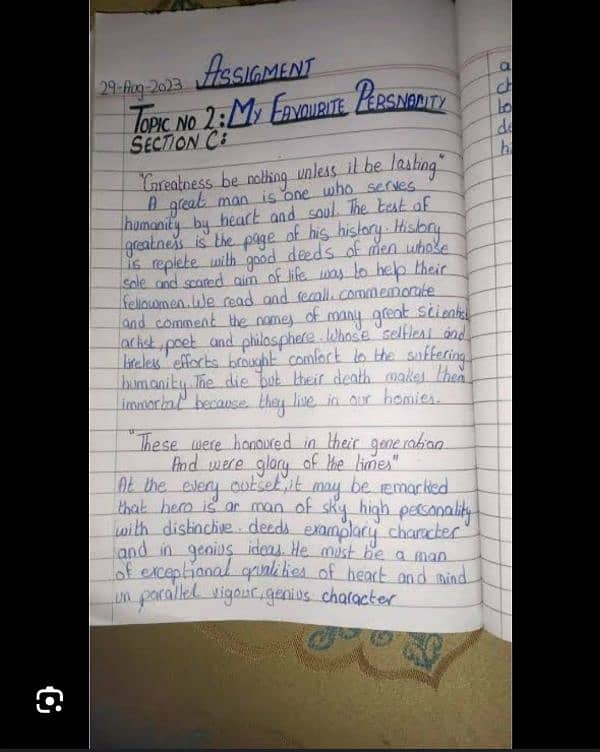 ASSIGMENT
29-Aug-2023
TOPIC NO 2: MY FAVOURITE PERSNOMITY
SECTION C:
"Greatness be nothing unless it be lasting"
A great man is one who serves
humanity by heart and soul. The test of
greatness is the page of his history. History
is replete with good deeds of men whose
sole and scared aim of life was to help their
fellowmen. We read and recall, commemorate
and comment the names of many great scientist
artist, poet and philosphere. Whose selfless and
tireless efforts brought comfort to the suffering
humanity. The die but their death makes them
immortal because they live in our homies.
"These were honoured in their generation
And were glory of the times"
At the every outset, it may be remarked
that hero is an man of sky high personality
with distinctive deeds examplary character
and in genius ideas. He must be a man
of exceptional qualities of heart and mind
un parallel vigour, genius character
a
ch
bo
de
hi